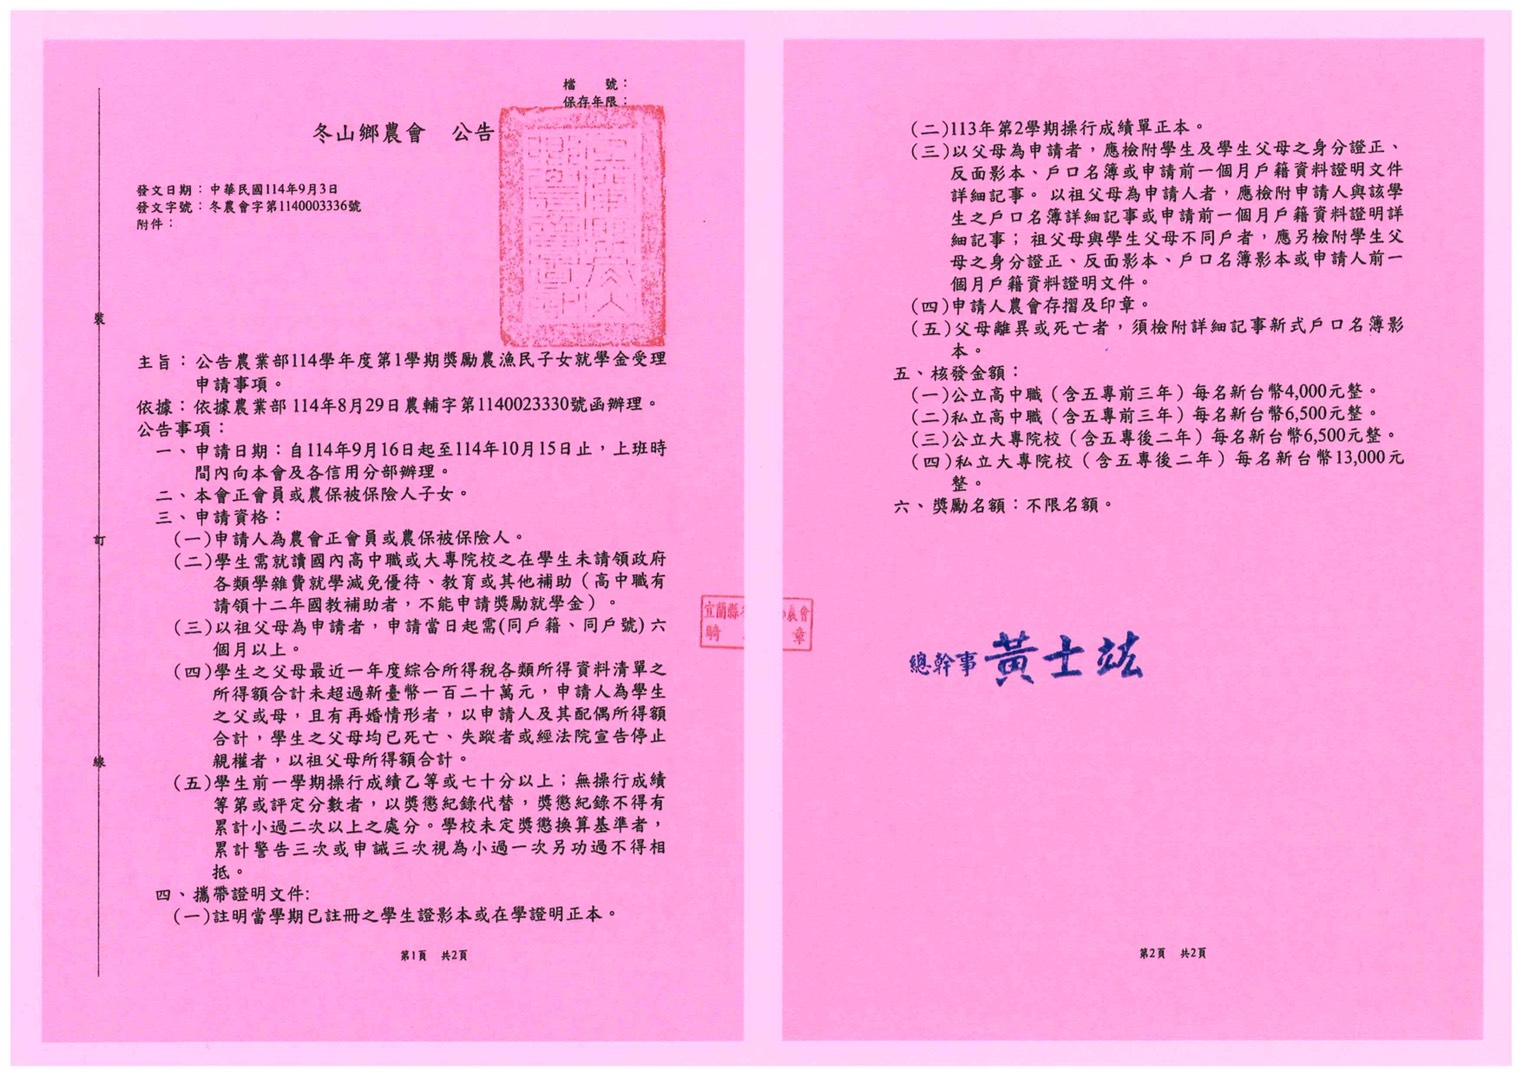 檔　　號：
保存年限：
冬山鄉農會　公告
發文日期：中華民國114年9月3日
發文字號：冬農會字第1140003336號
附件：
裝
訂
線
主旨：公告農業部114學年度第1學期獎勵農漁民子女就學金受理
申請事項。
依據：依據農業部 114年8月29日農輔字第1140023330號函辦理。
公告事項：
一、申請日期：自114年9月16日起至114年10月15日止，上班時
間內向本會及各信用分部辦理。
二、本會正會員或農保被保險人子女。
三、申請資格：
（一）申請人為農會正會員或農保被保險人。
（二）學生需就讀國內高中職或大專院校之在學生未請領政府
各類學雜費就學減免優待、教育或其他補助（高中職有
請領十二年國教補助者，不能申請獎勵就學金）。
（三）以祖父母為申請者，申請當日起需(同戶籍、同戶號)六
個月以上。
（四）學生之父母最近一年度綜合所得稅各類所得資料清單之
所得額合計未超過新臺幣一百二十萬元，申請人為學生
之父或母，且有再婚情形者，以申請人及其配偶所得額
合計，學生之父母均已死亡、失蹤者或經法院宣告停止
親權者，以祖父母所得額合計。
（五）學生前一學期操行成績乙等或七十分以上；無操行成績
等第或評定分數者，以獎懲紀錄代替，獎懲紀錄不得有
累計小過二次以上之處分。學校未定獎懲換算基準者，
累計警告三次或申誡三次視為小過一次另功過不得相
抵。
四、攜帶證明文件:
（一）註明當學期已註冊之學生證影本或在學證明正本。
第1頁　共2頁
（二）113年第2學期操行成績單正本。
（三）以父母為申請者，應檢附學生及學生父母之身分證正、
反面影本、戶口名簿或申請前一個月戶籍資料證明文件
詳細記事。 以祖父母為申請人者，應檢附申請人與該學
生之戶口名簿詳細記事或申請前一個月戶籍資料證明詳
細記事；祖父母與學生父母不同戶者，應另檢附學生父
母之身分證正、反面影本、戶口名簿影本或申請人前一
個月戶籍資料證明文件。
（四）申請人農會存摺及印章。
（五）父母離異或死亡者，須檢附詳細記事新式戶口名簿影
本。
五、核發金額：
（一）公立高中職（含五專前三年）每名新台幣4,000元整。
（二）私立高中職（含五專前三年）每名新台幣6,500元整。
（三）公立大專院校（含五專後二年）每名新台幣6,500元整。
（四）私立大專院校（含五專後二年）每名新台幣13,000元
整。
六、獎勵名額：不限名額。
宜蘭縣
農會
騎
章
總幹事 黃士竑
第2頁　共2頁